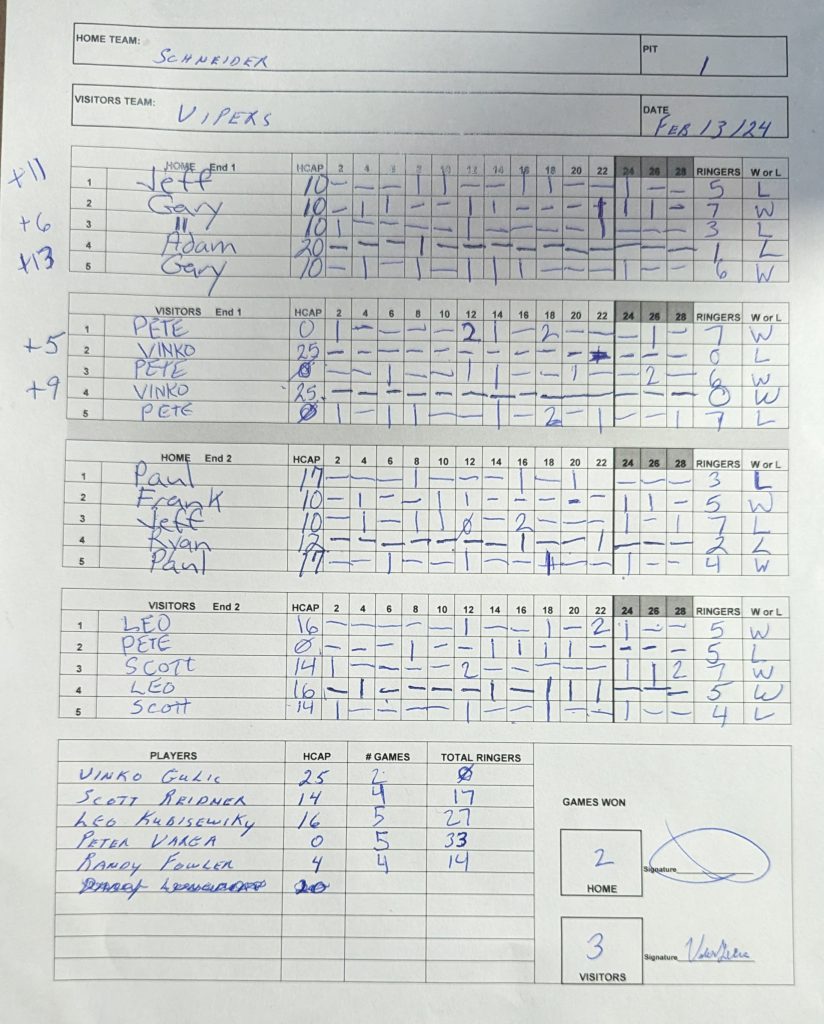 HOME TEAM: SCHNEIDER PIT 1
VISITORS TEAM: VIPERS DATE FEB 13/24
HOME End 1 HCAP 2 4 6 8 10 12 14 16 18 20 22 24 26 28 RINGERS W or L
+11 1 Jeff 10 – – – 1 1 – – 1 1 – – 1 – – 5 L
2 Gary 10 – 1 1 – – 1 1 – – – 1 1 1 – 7 W
+6 3 " 10 1 – – – – 1 – – – – 1 – – – 3 L
+13 4 Adam 20 – – – 1 – – – – – – – – – – 1 L
5 Gary 10 – 1 – 1 – 1 1 1 – – – 1 – – 6 W
VISITORS End 1 HCAP 2 4 6 8 10 12 14 16 18 20 22 24 26 28 RINGERS W or L
1 PETE 0 1 – – – – 2 1 – 2 – – – 1 – 7 W
+5 2 VINKO 25 – – – – – – – – – – – – – – 0 L
3 PETE 0 – – 1 – – 1 1 – – 1 – – 2 – 6 W
+9 4 VINKO 25 – – – – – – – – – – – – – – 0 W
5 PETE 0 1 – 1 1 – – 1 – 2 – 1 – – 1 7 L
HOME End 2 HCAP 2 4 6 8 10 12 14 16 18 20 22 24 26 28 RINGERS W or L
1 Paul 17 – – – 1 – – – 1 – 1 – – – 3 L
2 Frank 10 – 1 – – 1 1 – – – – – 1 1 – 5 W
3 Jeff 10 – 1 – 1 1 0 – 2 – – – 1 – 1 7 L
4 Ryan 12 – – – – – – – 1 – – 1 – – – 2 L
5 Paul 17 – – 1 – – 1 – – 1 – – 1 – – 4 W
VISITORS End 2 HCAP 2 4 6 8 10 12 14 16 18 20 22 24 26 28 RINGERS W or L
1 LEO 16 – – – – – 1 – – 1 – 2 1 – – 5 W
2 PETE 0 – – – 1 – – 1 1 1 1 – – – – 5 L
3 SCOTT 14 1 – – – – 2 – – – – – 1 1 2 7 W
4 LEO 16 – 1 – – – – 1 – 1 1 1 – – – 5 W
5 Scott 14 1 – – – – 1 – – 1 – – 1 – – 4 L
PLAYERS HCAP # GAMES TOTAL RINGERS
VINKO GULIC 25 2 0
SCOTT REIDNER 14 4 17
LEO KUBISEWIKY 16 5 27
PETER VARGA 0 5 33
RANDY FOWLER 4 4 14
20
GAMES WON
2
HOME
Signature
3
VISITORS
Signature